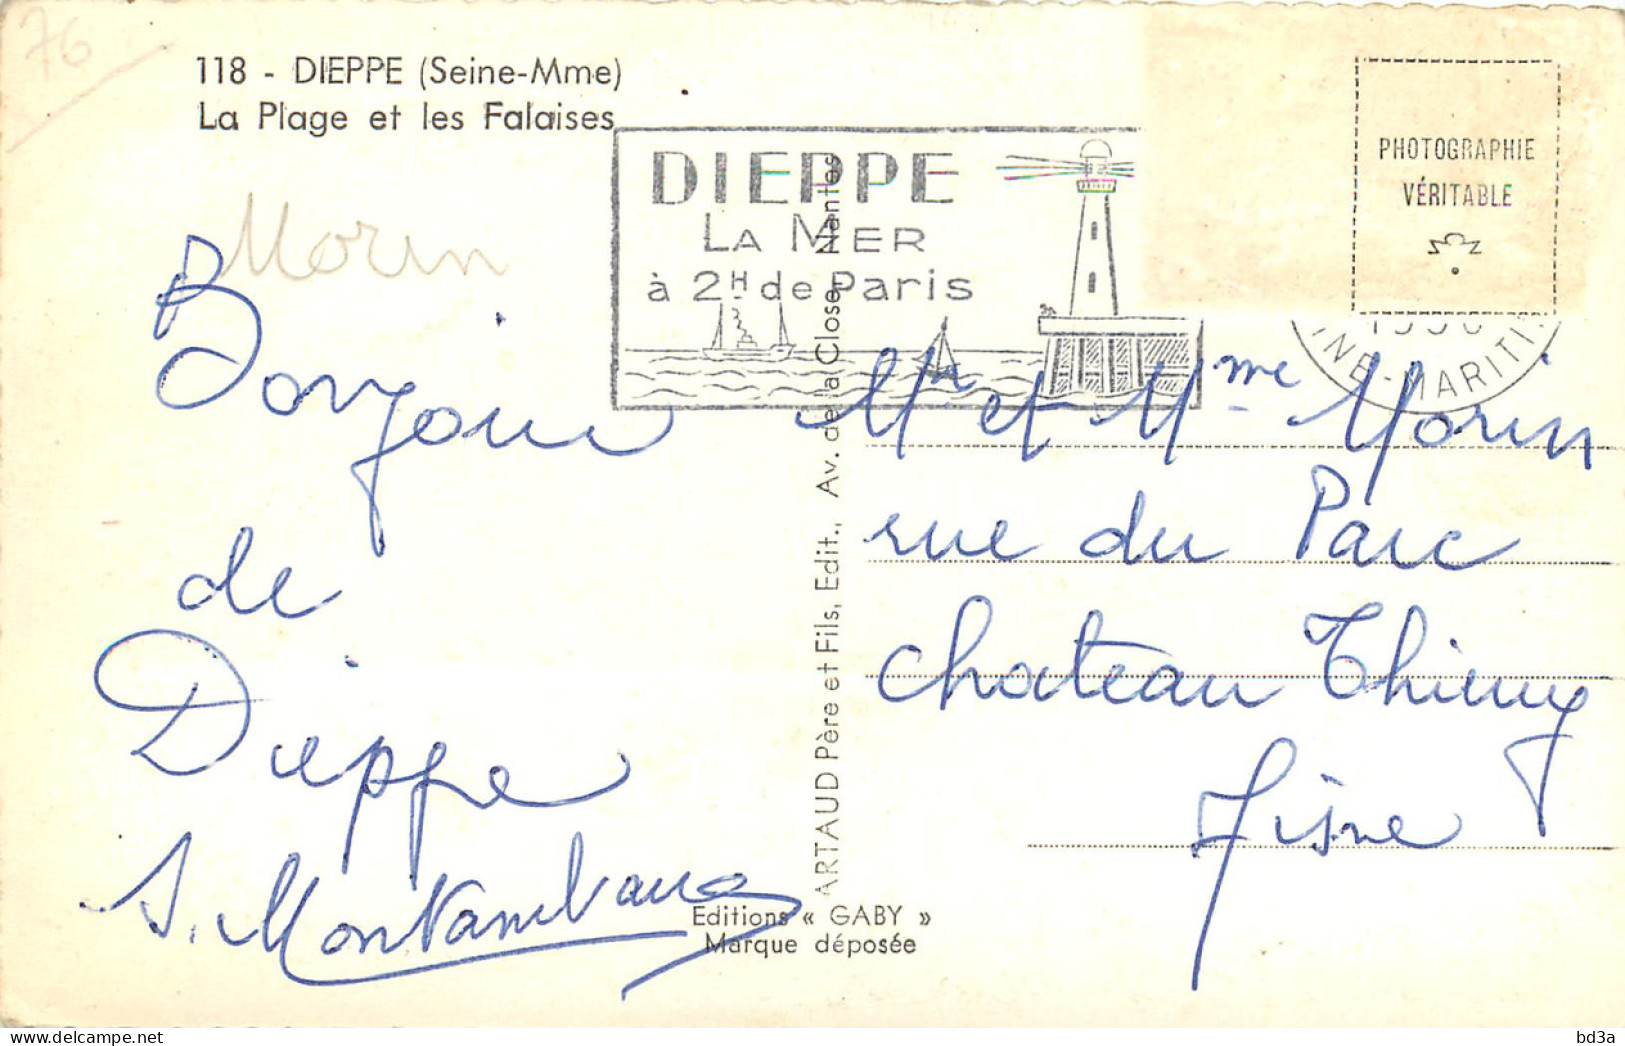 76
118 - DIEPPE (Seine-Mme)
La Plage et les Falaises
Morin
DIEPPE
LA MER
à 2H de Paris
PHOTOGRAPHIE
VÉRITABLE
INE-MARITI
Bonjour
de
Dieppe
ARTAUD Père et Fils, Edit., Av. de la Close, Nantes
Mr et Mme Morin
rue du Parc
Chateau Thierry
Aisne
Editions « GABY »
Marque déposée
bd3a